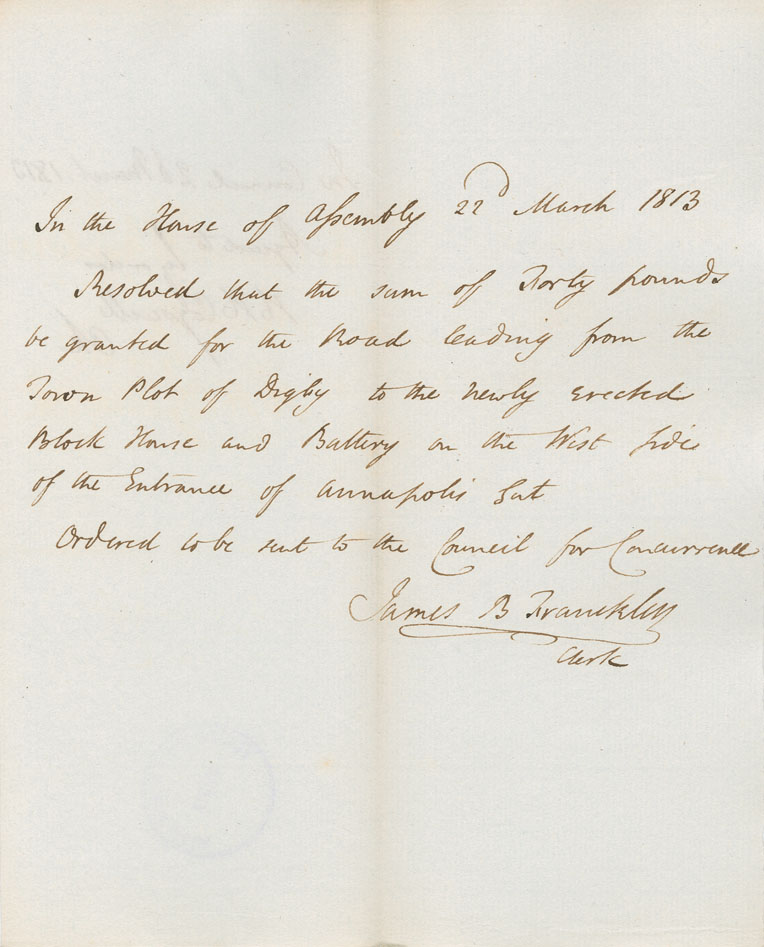 In the House of Assembly 22d March 1813
Resolved that the sum of Forty pounds
be granted for the Road leading from the
Town Plot of Digby to the newly erected
Block House and Battery on the West side
of the Entrance of Annapolis Gut
Ordered to be sent to the Council for Concurrence
James B Francklin
Clerk